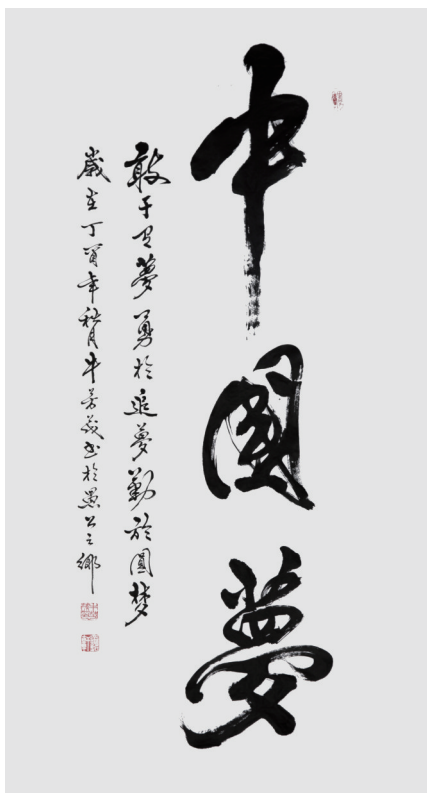 中國夢
敢于有夢勇於追夢勤於圓梦
歲在丁酉年秋月牛芳葵书於愚公之鄉